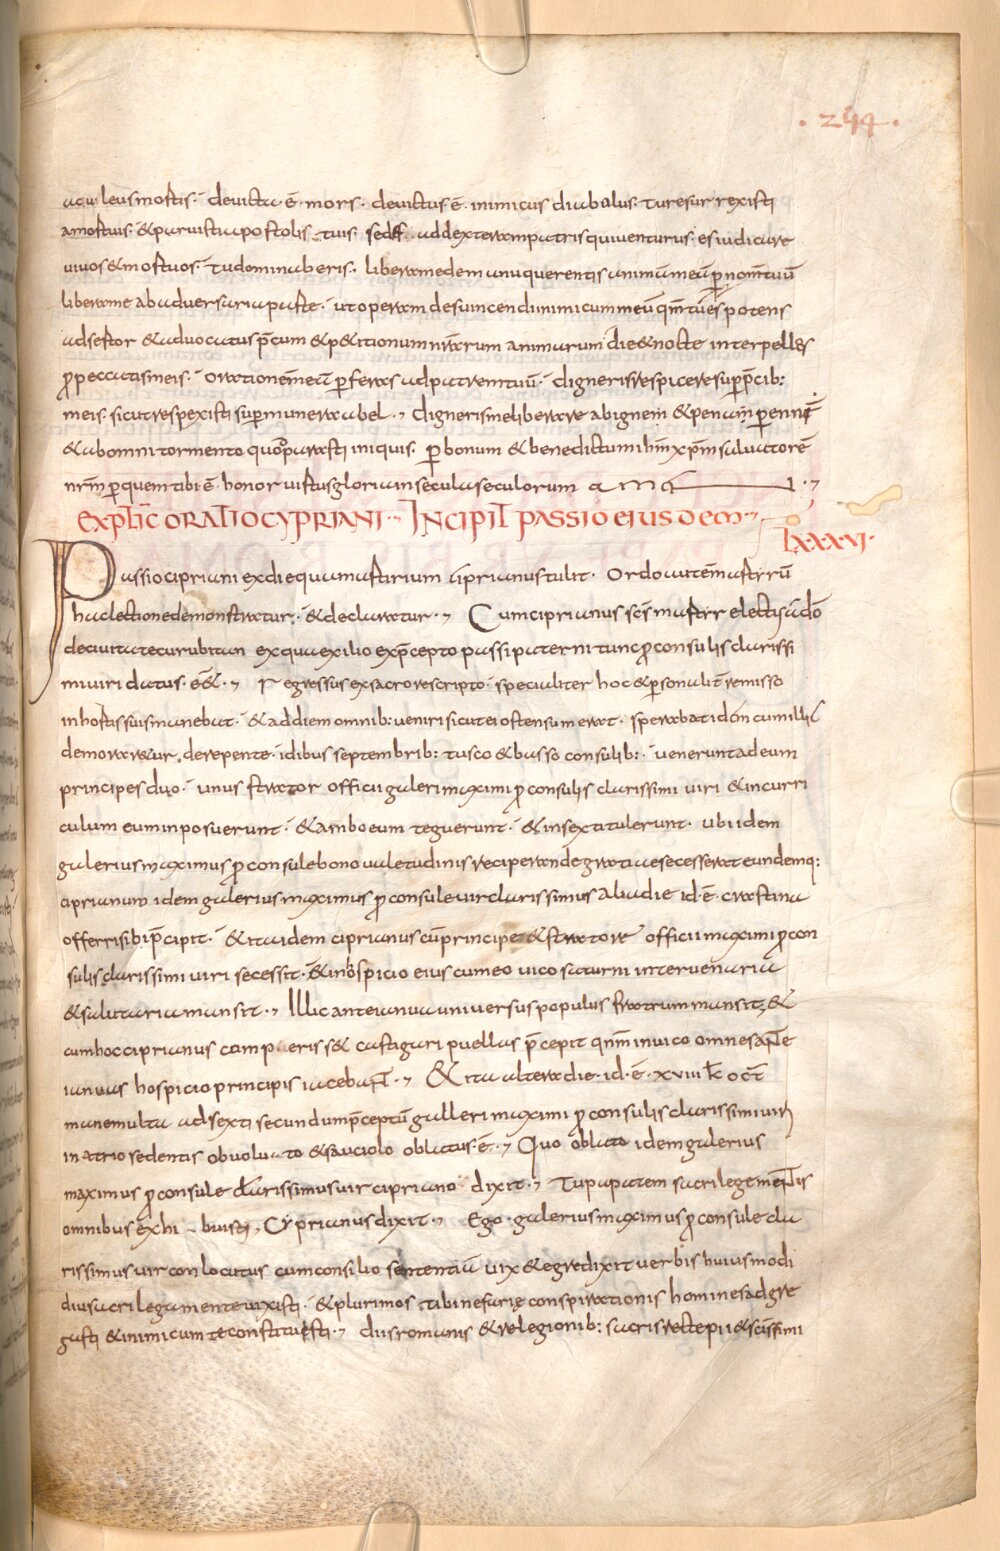 · 244 ·
aculeus mortis · devicta ē · mors · devictus ē · inimicus diabolus · tu resurrexisti
a mortuis · & parvisti apostolis tuis · sedes ad dexteram patris qui venturus es iudicare
vivos & mortuos · tu dominaberis · libera me de manu querentis animā meā p̄ nom̄ tuū
libera me ab adversaria parte · ut opera m̄ des vincendi inimicum meū qm̄ tu es potens
adsertor & advocatus p̄cum & p&itionum nr̄arum animarum die & nocte interpelles
p̱ peccatis meis · orationē meā p̱feras ad patrem tuū · digneris respicere sup̱ p̄cib:
meis · sicut respexisti sup̱ munera abel · digneris me liberare ab ignem & pena m̄ p̱enni
& ab omni tormento quod p̱arasti iniquis · p̱ bonum & benedictum ih̄m xp̄m salvatorē
nr̄m p̱ quem tibi ē · honor virtus gloria in secula seculorum am̄
explic oratio cypriani ·· Incipit passio eiusdem ·
lxxxvi ·
Passio cipriani ex die qua martirium ciprianus tulit · Ordo autē martyrū
hac lectione demonstratur · & declaratur · Cum ciprianus scs̄ martyr electis a dō
de civitate curubitan ex qua exilio ex p̄cepto paterni tunc p̱consulis clarissi
mi viri datus · ē& · regressus ex sacro rescripto · specialiter hoc & personalit̄ remisso
in hortis suis manebat · & ad diem omnib: veniri sicut ei ostensum erat · sperabat id cum illic
demoraretur · derepente · idibus septembrib: tusco & basso consulib: · venerunt ad eum
principes duo · unus strator officii galeri maximi p̱consulis clarissimi viri & in curri
culum eum inposuerunt · & ambo eum teguerunt · & in sexti tulerunt · ubi idem
galerius maximus p̱consule bono valetudinis reciperande gratia secesserat eundemq:
ciprianum idem galerius maximus p̱consule vir clarissimus alia die id · ē · crastina
offerri sibi p̄cipit · & ita idem ciprianus cū principe & stratore officii maximi p̱con
sulis clarissimi viri secessit · & in hospicio eius cum eo vico saturni inter venaria
& salutaria mansit · Illic ante ianua universus populus fratrum mansit &
cum hoc ciprianus comperiss& castigari puellas p̄cepit qm̄ in vico omnes ante
ianuas hospicio principis iacebant · & ita altera die · id · ē · xviii kl oct
mane multa ad sexti secundum p̄ceptū galleri maximi p̱consulis clarissimi viri
in atrio sedentis obvoluto & sauciolo oblatus · ē · Quo oblato idem galerius
maximus p̱consule clarissimus vir cipriano dixit · Tu papatem sacrilege mentis
omnibus exhibuisti · Cyprianus dixit · Ego · galerius maximus p̱consule cla
rissimus vir conlocutus cum consilio sententiā vix & egre dixit verbis huiusmodi
diu sacrilega mente vixisti · & plurimos tibi nefarię conspirationis homines adgre
gasti & inimicum te constituisti · diis romanis & relegionib: sacris recte pii & scissimi